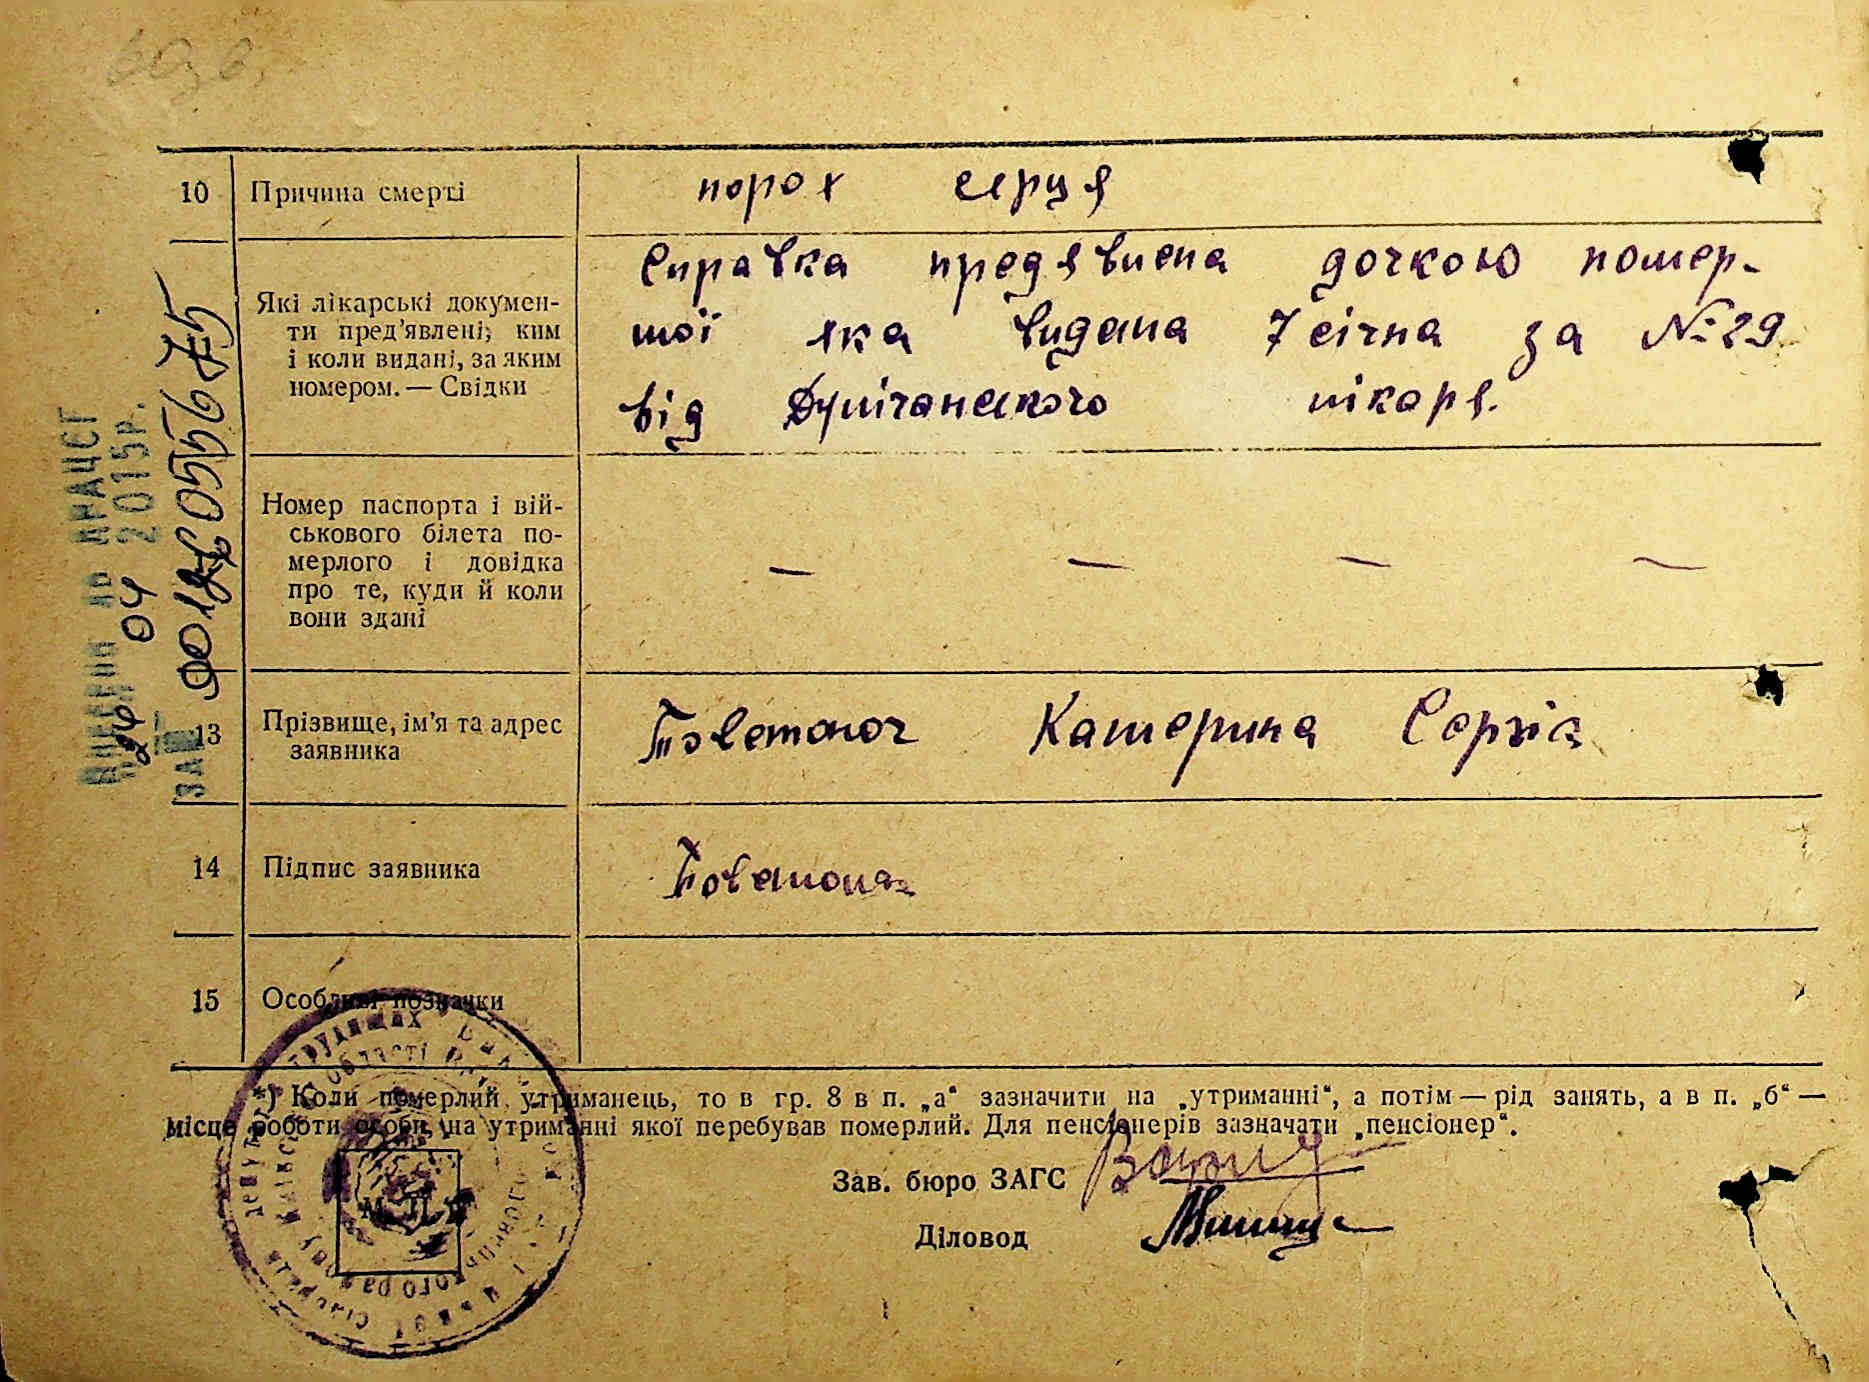 10 Причина смерті порох серця
Які лікарські докумен-
ти пред’явлені; ким
і коли видані, за яким
номером. — Свідки
Справка предявлена дочкою помер-
шої яка видана 7 січна за № 29
від лікаря.
Номер паспорта і вій-
ськового білета по-
мерлого і довідка
про те, куди й коли
вони здані
— — — —
13 Прізвище, ім’я та адрес
заявника
Катерина
14 Підпис заявника
15 Особливі позначки
*) Коли померлий утриманець, то в гр. 8 в п. „а“ зазначити на „утриманні“, а потім — рід занять, а в п. „б“ —
місце роботи особи, на утриманні якої перебував померлий. Для пенсіонерів зазначати „пенсіонер“.
Зав. бюро ЗАГС
Діловод
М. П.
ДРАЦСГ
04 2015р.